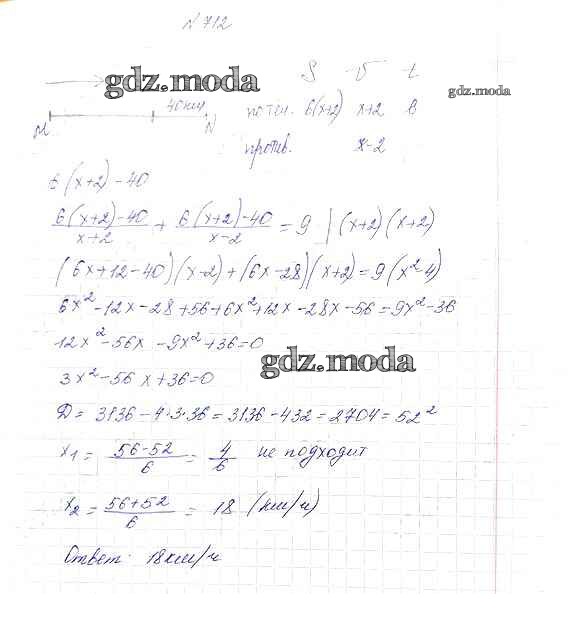 № 712
gdz.moda
S v t
gdz.moda
40 км
по теч. 6(x+2) x+2 6
M N
против. x-2
6(x+2)-40
6(x+2)-40/x+2 + 6(x+2)-40/x-2 = 9 | (x+2)(x+2)
(6x+12-40)(x-2)+(6x-28)(x+2)=9(x²-4)
6x²-12x-28+56+6x²+12x-28x-56=9x²-36
12x²-56x-9x²+36=0
gdz.moda
3x²-56x+36=0
D= 3136-4·3·36=3136-432=2704=52²
x₁= 56-52/6 = 4/6 не подходит
x₂= 56+52/6 = 18 (км/ч)
Ответ: 18км/ч